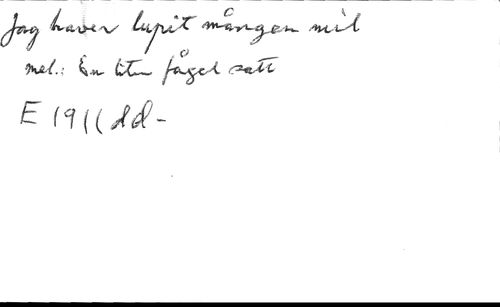 Jag haver lupit mången mil
mel.: En liten fågel satt
E 1911 dd -